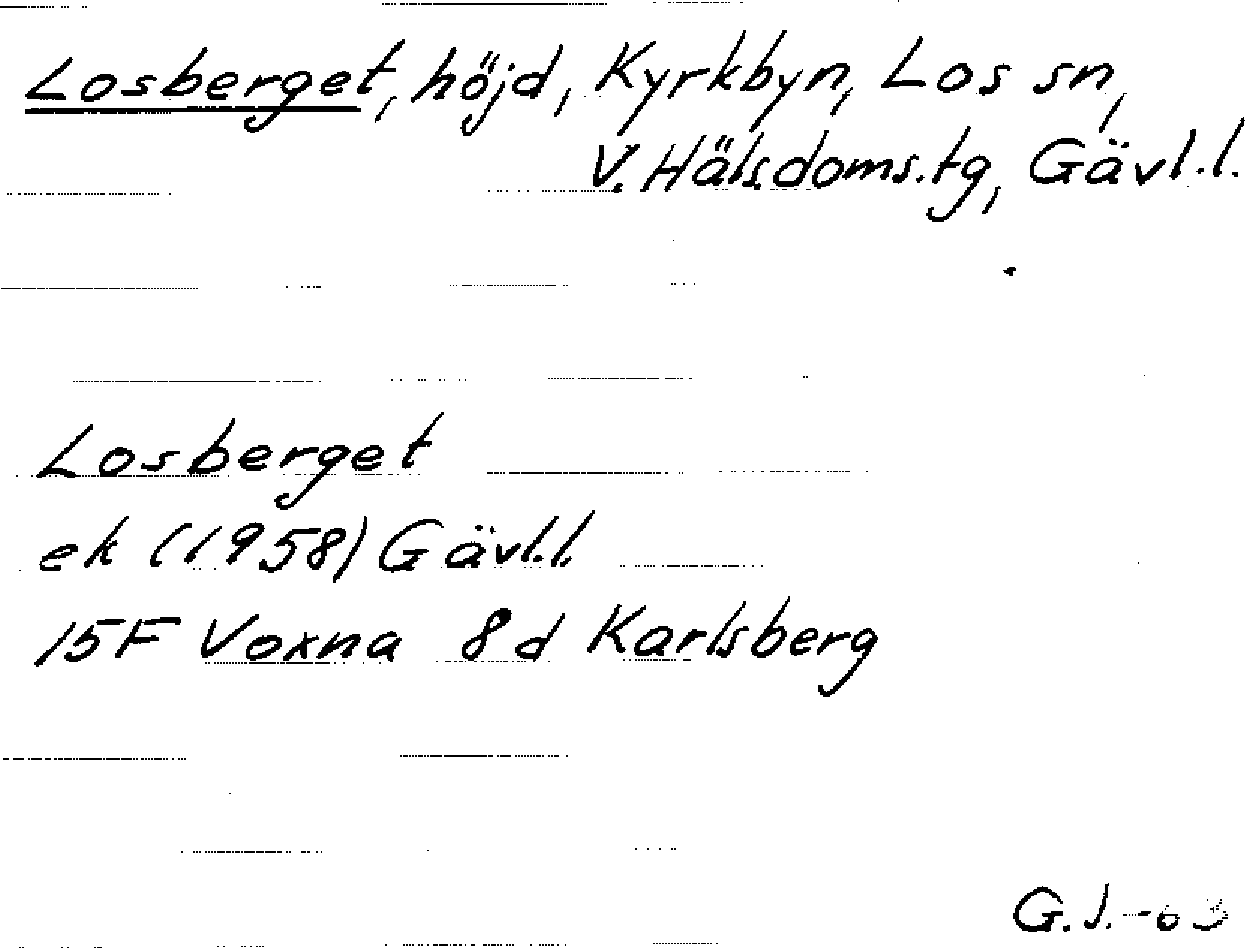 Losberget, höjd, Kyrkbyn, Los sn,
V. Häls.doms.tg, Gävl.l.
Losberget
ek (1958) Gävl.l.
15F Voxna 8d Karlsberg
G.J.-63